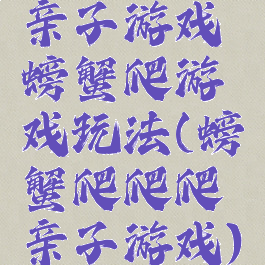 亲子游戏
螃蟹爬游
戏玩法(螃
蟹爬爬爬
亲子游戏)